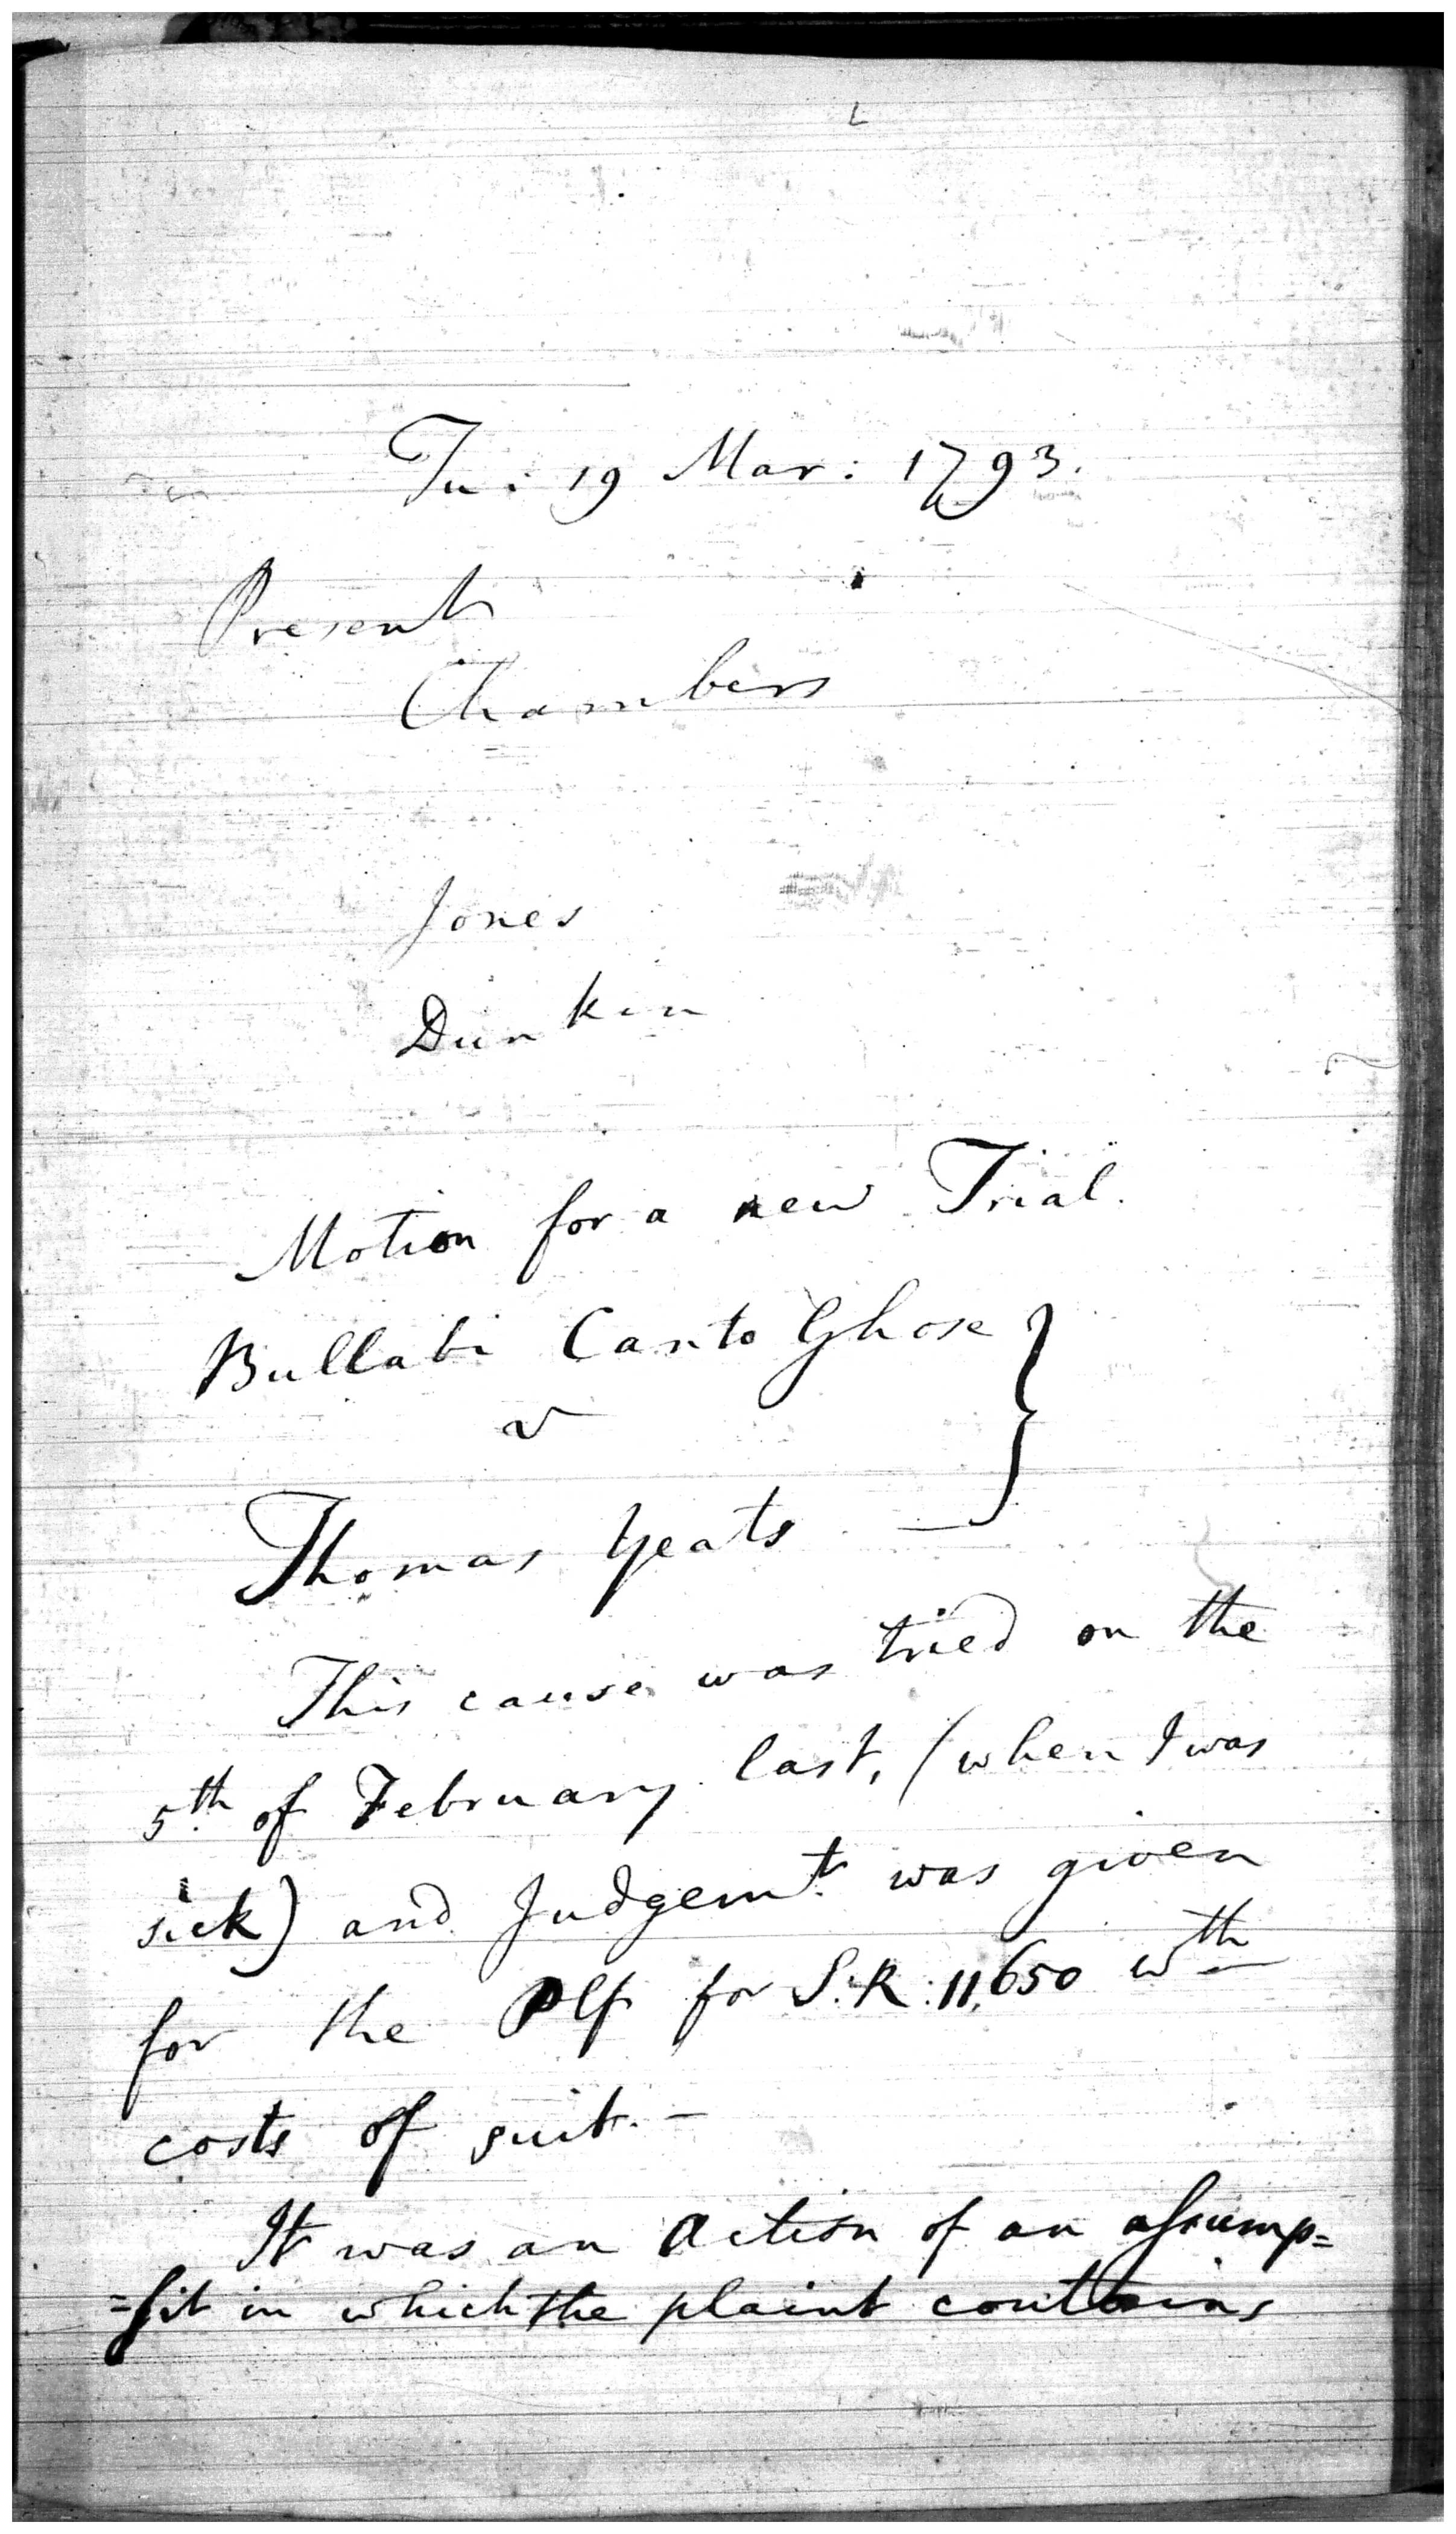 Tu: 19 Mar: 1793.
Present
Chambers
Jones
Dunkin
Motion for a new Trial.
Bullabi Canto Ghose
v
Thomas Yeats
This cause was tried on the
5th of February last, (when I was
sick) and Judgemt. was given
for the Plf for S.R: 11,650 wth
costs of suit. -
It was an Action of an assump=
=sit in which the plaint contains